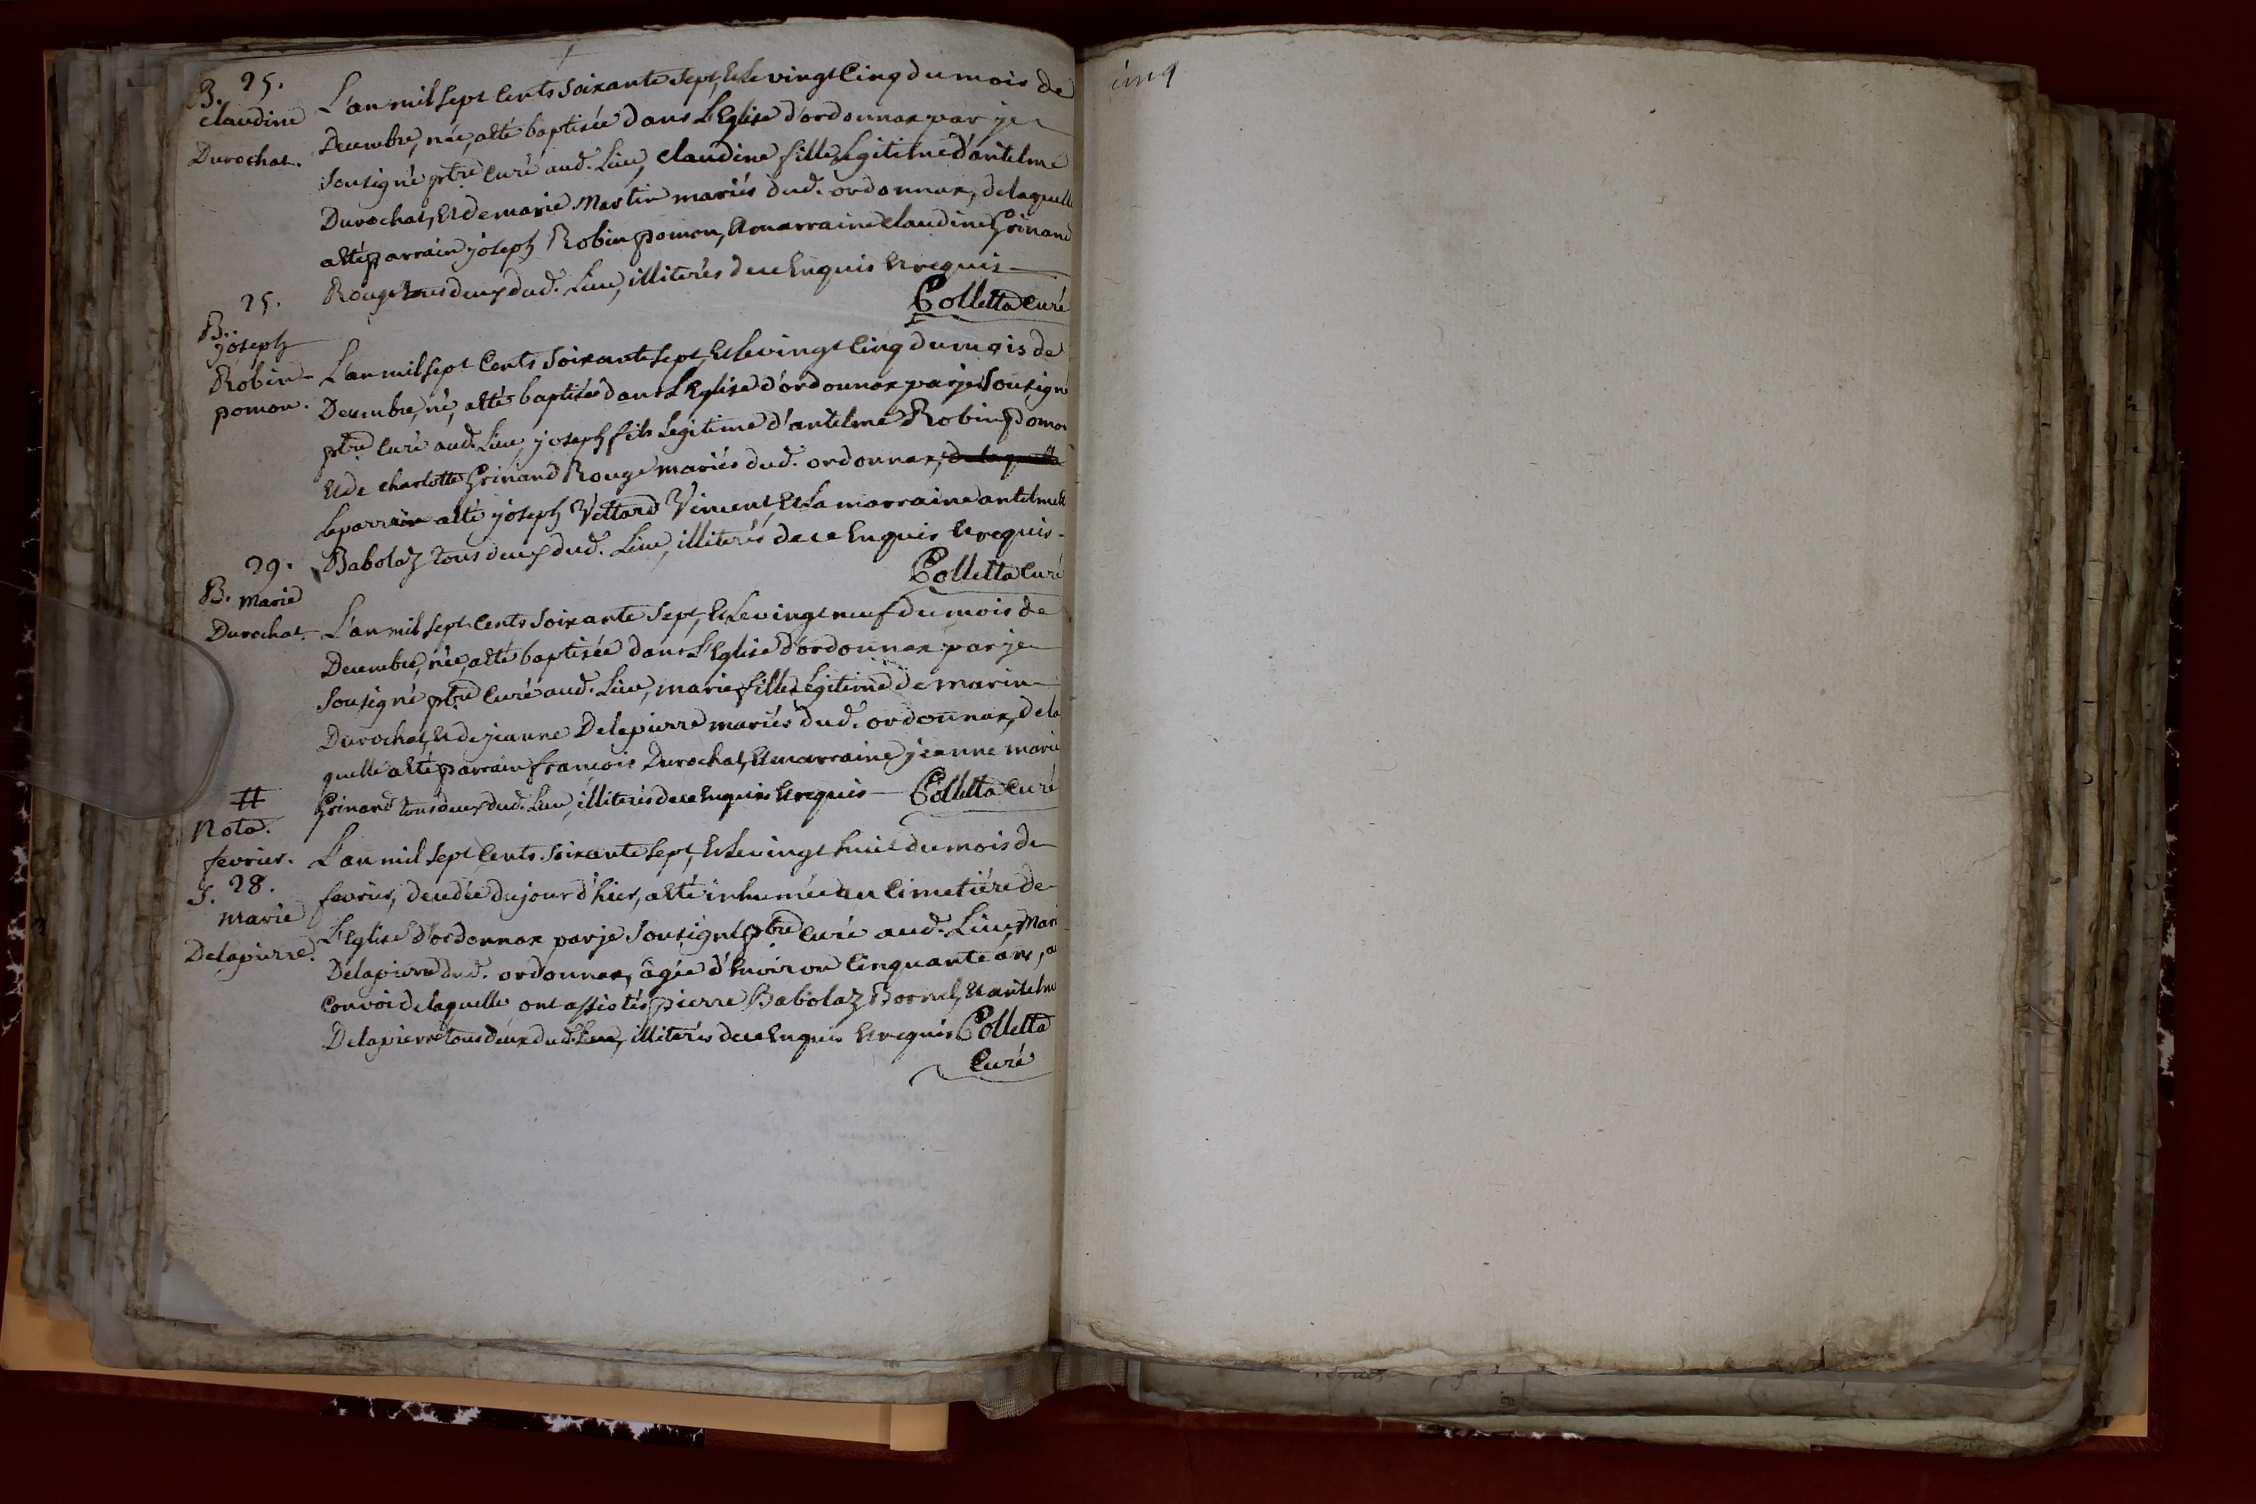 B. 25.
claudine
Durochat.
L'an mil sept Cents soixante sept, Et le vingt Cinq du mois de
Decembre, née, a été baptisée dans L'Eglise d'ordonnax par je
sousigné ptre Curé aud. Lieu, claudine fille Legitime d'antelme
Durochat, Et de marie Martin mariés dud. ordonnax, de laquelle
a été parrain joseph Robin pomon, Et marraine claudine Grinand
Rouge tous deux dud. Lieu, illiterés de ce Enquis Et requis
Colletta Curé
25.
B. joseph
Robin
pomon.
L'an mil sept Cents soixante sept, Et le vingt Cinq du mois de
Decembre, né, a été baptisé dans L'Eglise d'ordonnax par je sousigné
ptre Curé aud. Lieu, joseph fils Legitime d'antelme Robin pomon
Et de charlotte Grinand Rouge mariés dud. ordonnax, de laquelle
Le parrain a été joseph Vettard Vincent, Et La marraine antelmette
Babolaz tous deux dud. Lieu, illiterés de ce Enquis Et requis
Colletta Curé
29.
B. marie
Durochat.
L'an mil sept Cents soixante sept, Et le vingt neuf du mois de
Decembre, née, a été baptisée dans L'Eglise d'ordonnax par je
sousigné ptre Curé aud. Lieu, marie fille Legitime de marin
Durochat, Et de jeanne Delapierre mariés dud. ordonnax, de la
quelle a été parrain francois Durochat, Et marraine jeanne marie
Grinand tous deux dud. Lieu, illiterés de ce Enquis Et requis Colletta Curé
#
Nota.
fevrier.
S. 28.
marie
Delapierre.
L'an mil sept Cents soixante sept, Et le vingt huit du mois de
fevrier, decedée du jour d'hier, a été inhumée au Cimetiére de
L'Eglise d'ordonnax par je sousigné ptre Curé aud. Lieu, Marie
Delapierre dud. ordonnax, âgée d'Environ Cinquante ans, au
Convoi de laquelle ont assistés pierre Babolaz Bornel, Et antelme
Delapierre tous deux dud. Lieu, illiterés de ce Enquis Et requis Colletta
Curé
cinq